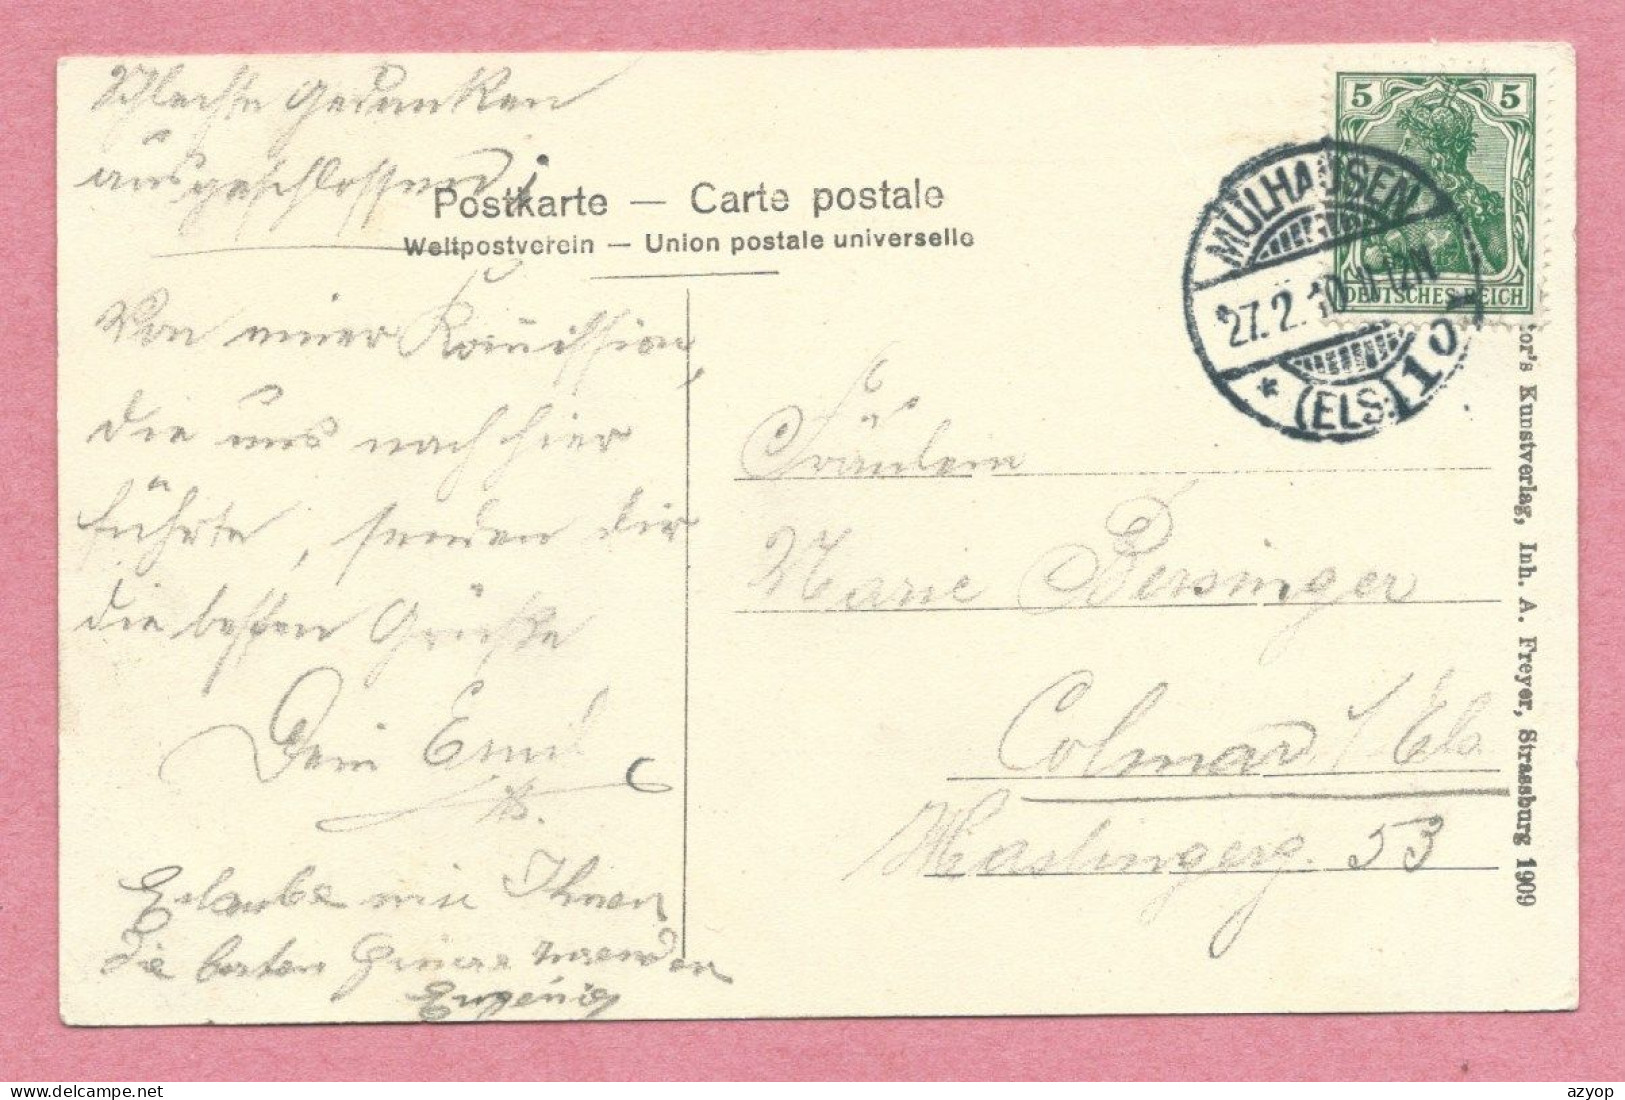 Schlechte Gedanken
ausgeschlossen!
Postkarte — Carte postale
Weltpostverein — Union postale universelle
Von einer Kommission,
die uns nach hier
führte, senden dir
die besten Grüße
Dein Emil
Erlaube mir Ihnen
die besten zu senden
Eugenie
5 5
DEUTSCHES REICH
MÜLHAUSEN
27.2.10 11-12N
* (ELS.) 1
Fräulein
Marie Bersinger
Colmar i/Els.
53
or's Kunstverlag, Inh. A. Freyer, Strassburg 1909
azyop